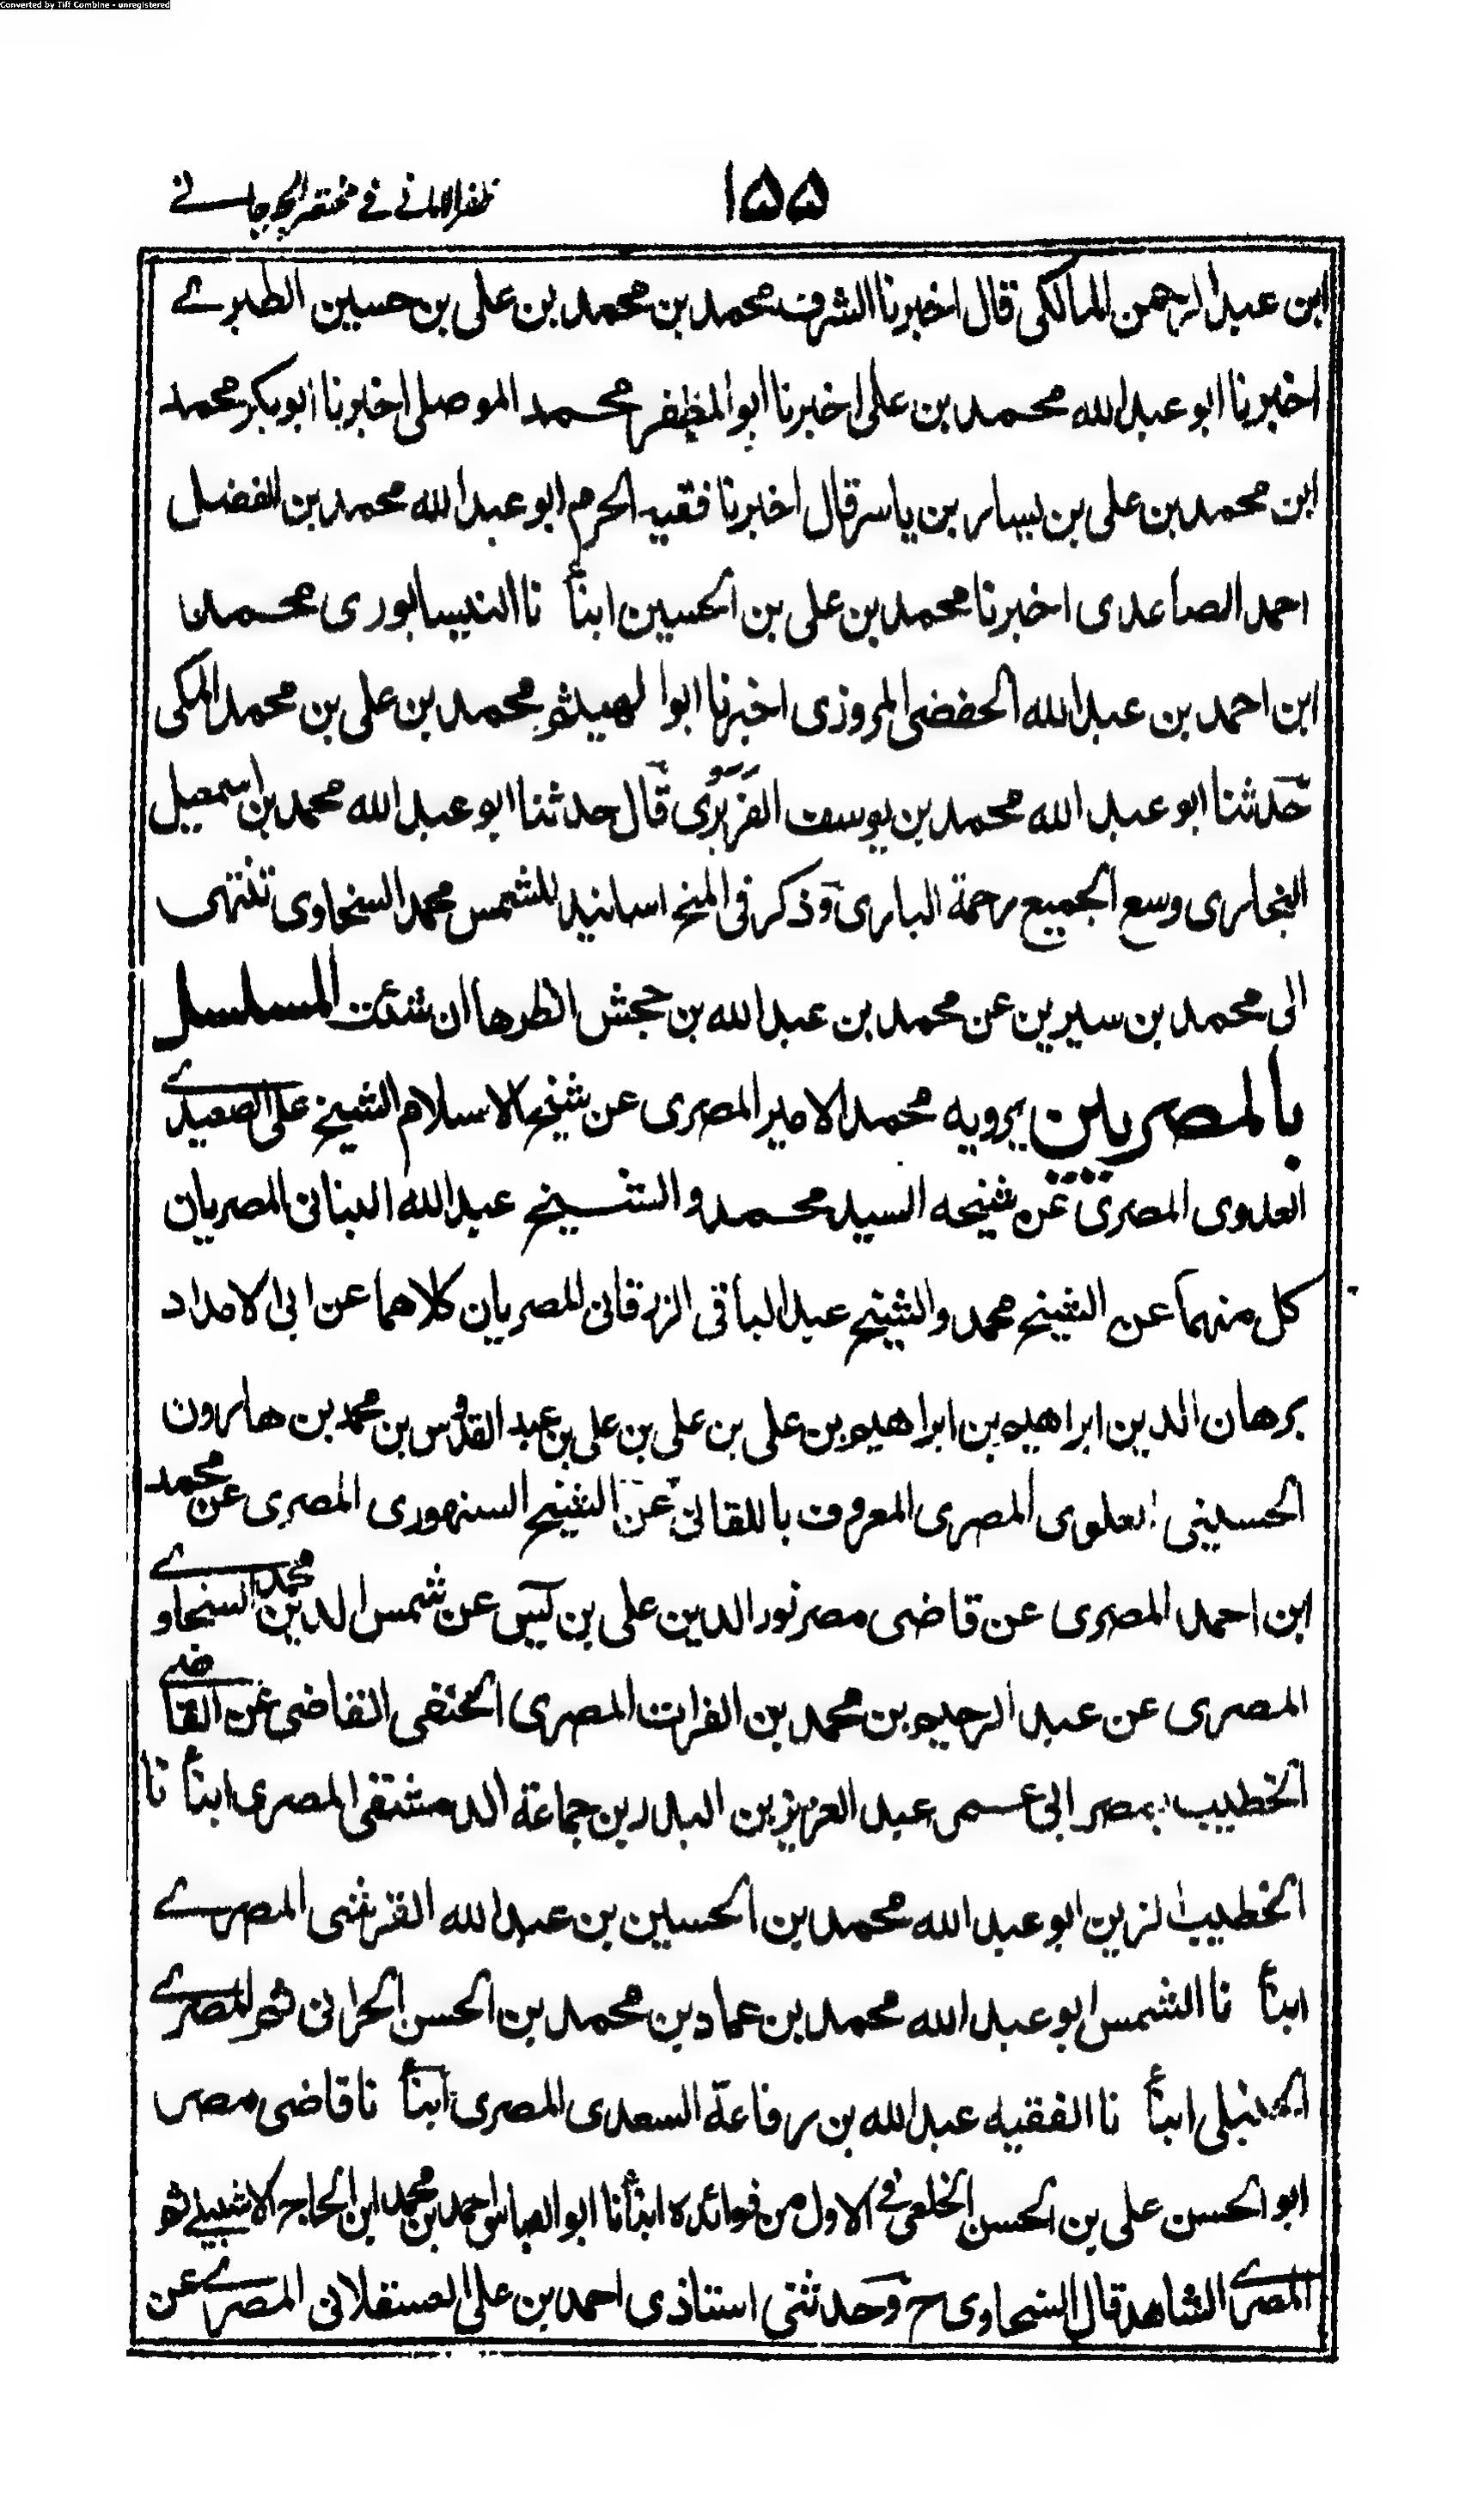 Converted by Tiff Combine - unregistered
۱۵۵ ظفر الامانی فی مختصر الجرجانے
ابن عبد الرحمن المالکی قال اخبرنا الشرف محمد بن محمد بن علی بن حسین الطبرے
اخبرنا ابو عبد الله محمد بن علی اخبرنا ابو المظفر محمد الموصلی اخبرنا ابو بکر محمد
ابن محمد بن علی بن یسار بن یاسر قال اخبرنا فقیه الحرم ابو عبد الله محمد بن الفضل
احمد الصاعدی اخبرنا محمد بن علی بن الحسین ابنأ نا النیسابوری محمد بن
ابن احمد بن عبد الله الحفضی المروزی اخبرنا ابوا لهیثم محمد بن علی بن محمد المکی
حدثنا ابو عبد الله محمد بن یوسف الفَرَبْرِی قال حدثنا ابو عبد الله محمد بن اسمعیل
البخاری وسع الجمیع رحمة الباری وذکر فی المنح اسانید للشمس محمد السخاوی تنتهی
الی محمد بن سیرین عن محمد بن عبد الله بن حجش انظرها ان شئت المسلسل
بالمصریین یرویه محمد الامیر المصری عن شیخ الاسلام الشیخ علی الصعیدے
العدوی المصری عن شیخه السید محمد والشیخ عبد الله البنانی المصریان
کل منهما عن الشیخ محمد والشیخ عبد الباقی الزرقانی المصریان کلاهما عن ابی الامداد
برهان الدین ابراهیم بن ابراهیم بن علی بن علی بن علی بن عبد القدوس بن محمد بن هارون
الحسینی العلوی المصری المعروف باللقانی عن الشیخ السنهوری المصری عن محمد
ابن احمد المصری عن قاضی مصر نور الدین علی بن یٰس عن شمس الدین محمد السخاوے
المصری عن عبد الرحیم بن محمد بن الفرات المصری الحنفی القاضی عن القاضے
الخطیب بمصر ابی عمر عبد العزیز بن البدر بن جماعة الدمشقی المصری ابنأ نا
الخطیب الزین ابو عبد الله محمد بن الحسین بن عبد الله القرشی المصرے
ابنأ نا الشمس ابو عبد الله محمد بن عماد بن محمد بن الحسن الحرانی ثم المصرے
الحنبلی ابنأ نا الفقیه عبد الله بن رفاعة السعدی المصری ابنأ نا قاضی مصر
ابو الحسن علی بن الحسن الخلعی فے الاول من فوائده ابنأنا ابو العباس احمد بن محمد ابن الحاج الاشبیلے ثم
المصرے الشاهد قال السخاوی ح وحدثنی استاذی احمد بن علی العسقلانی المصرے عن